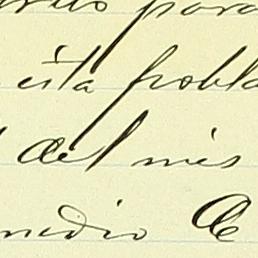 para
esta pobla
del mes
medio